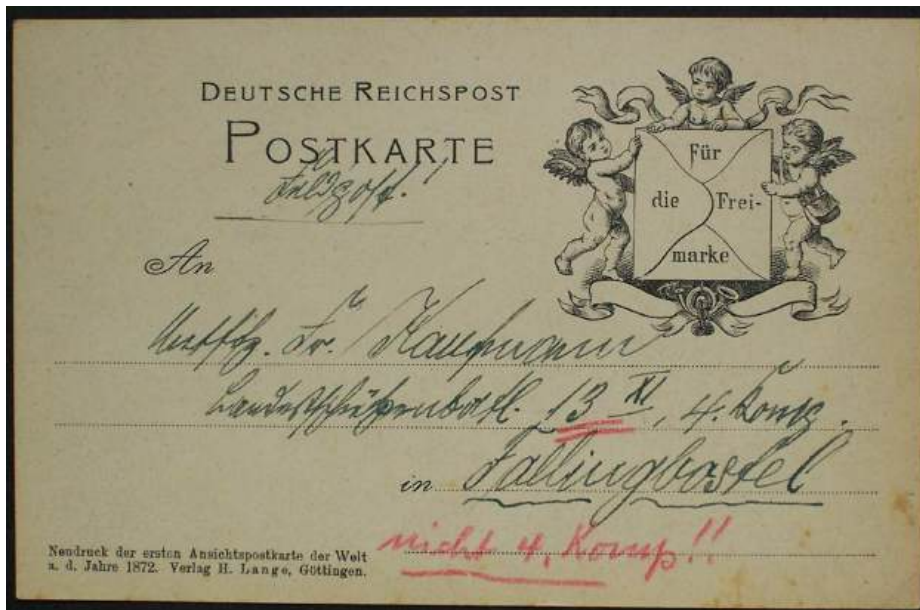 DEUTSCHE REICHSPOST
POSTKARTE
Feldpost!
An
Für
die Frei-
marke
Fr. Kaufmann
Landesschützenbatl. 13 XI, 4. Komp.
in Fallingbostel
nicht 4. Komp!!
Neudruck der ersten Ansichtspostkarte der Welt
a. d. Jahre 1872. Verlag H. Lange, Göttingen.